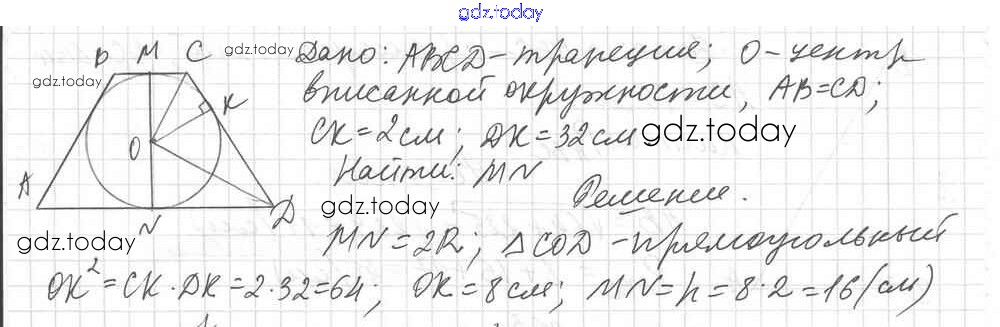 gdz.today
B M C gdz.today Дано: ABCD-трапеция; O-центр
gdz.today вписанной окружности, AB=CD;
K CK=2см; DK=32см gdz.today
O Найти: MN
A gdz.today Решение.
N D
gdz.today MN=2R; △COD-прямоугольный
OK²=CK·DK=2·32=64; OK=8см; MN=h=8·2=16(см)